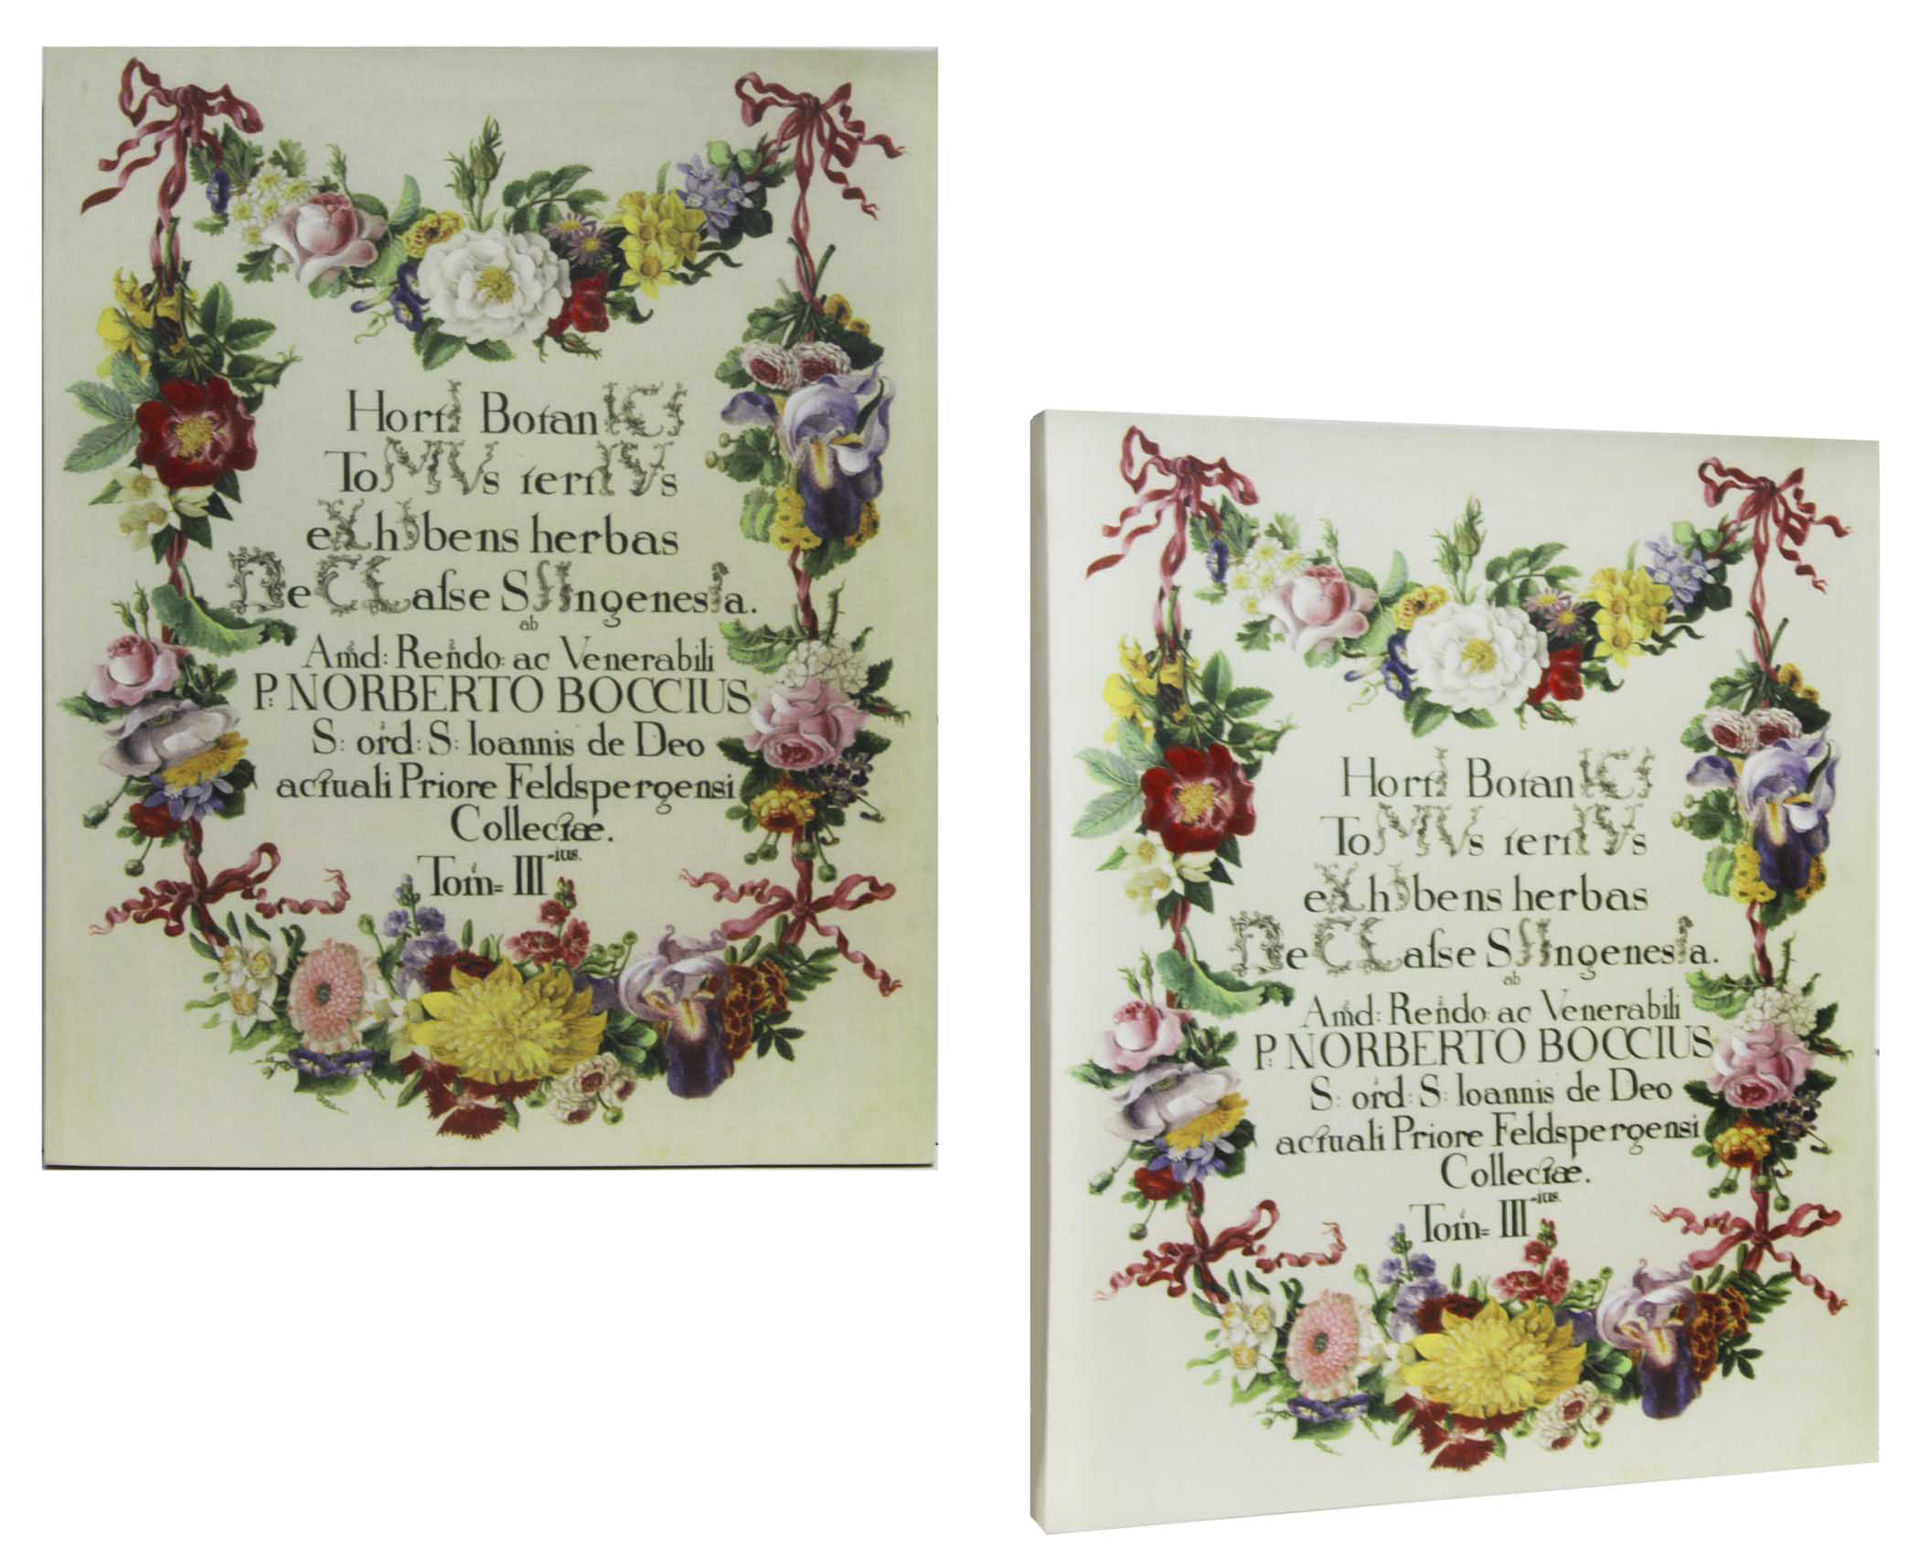 HortI BotanICI
ToMVs tertIVs
eXhIbens herbas
De CLaſse SIIngenesIa.
ab
Am̃d: Reñdo: ac Venerabili
P: NORBERTO BOCCIUS
S: oŕd: S: Ioannis de Deo
actuali Priore Feldspergensi
Collectæ.
Tom̃= III-ius.
HortI BotanICI
ToMVs tertIVs
eXhIbens herbas
De CLaſse SIIngenesIa.
ab
Am̃d: Reñdo: ac Venerabili
P: NORBERTO BOCCIUS
S: oŕd: S: Ioannis de Deo
actuali Priore Feldspergensi
Collectæ.
Tom̃= III-ius.